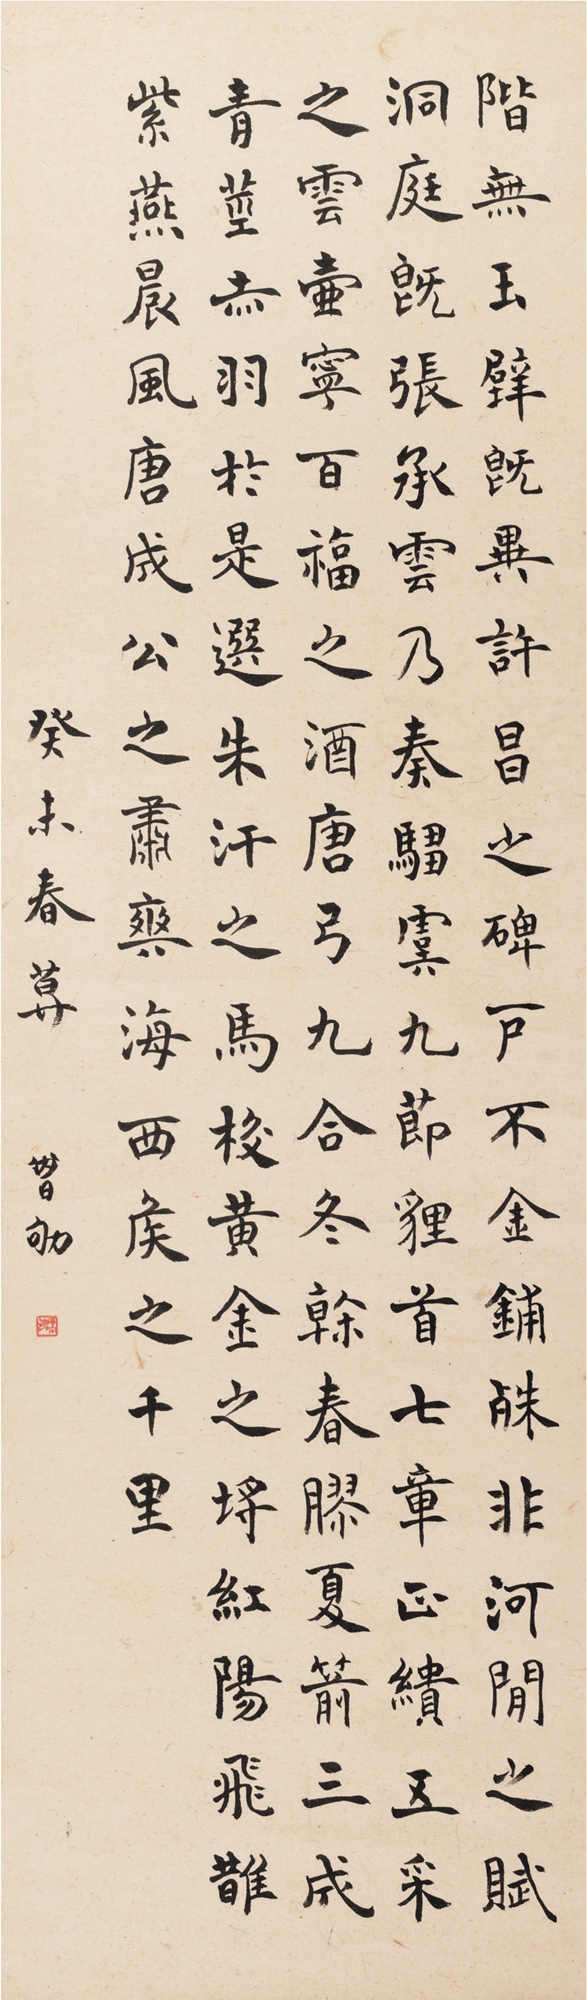 階無玉璧既異許昌之碑戶不金鋪殊非河閒之賦
洞庭既張承雲乃奏騶虞九節貍首七章正繢五采
之雲壷寧百福之酒唐弓九合冬幹春膠夏箭三成
青莖赤羽於是選朱汗之馬校黃金之埓紅陽飛鵲
紫燕晨風唐成公之肅爽海西侯之千里
癸未春莫